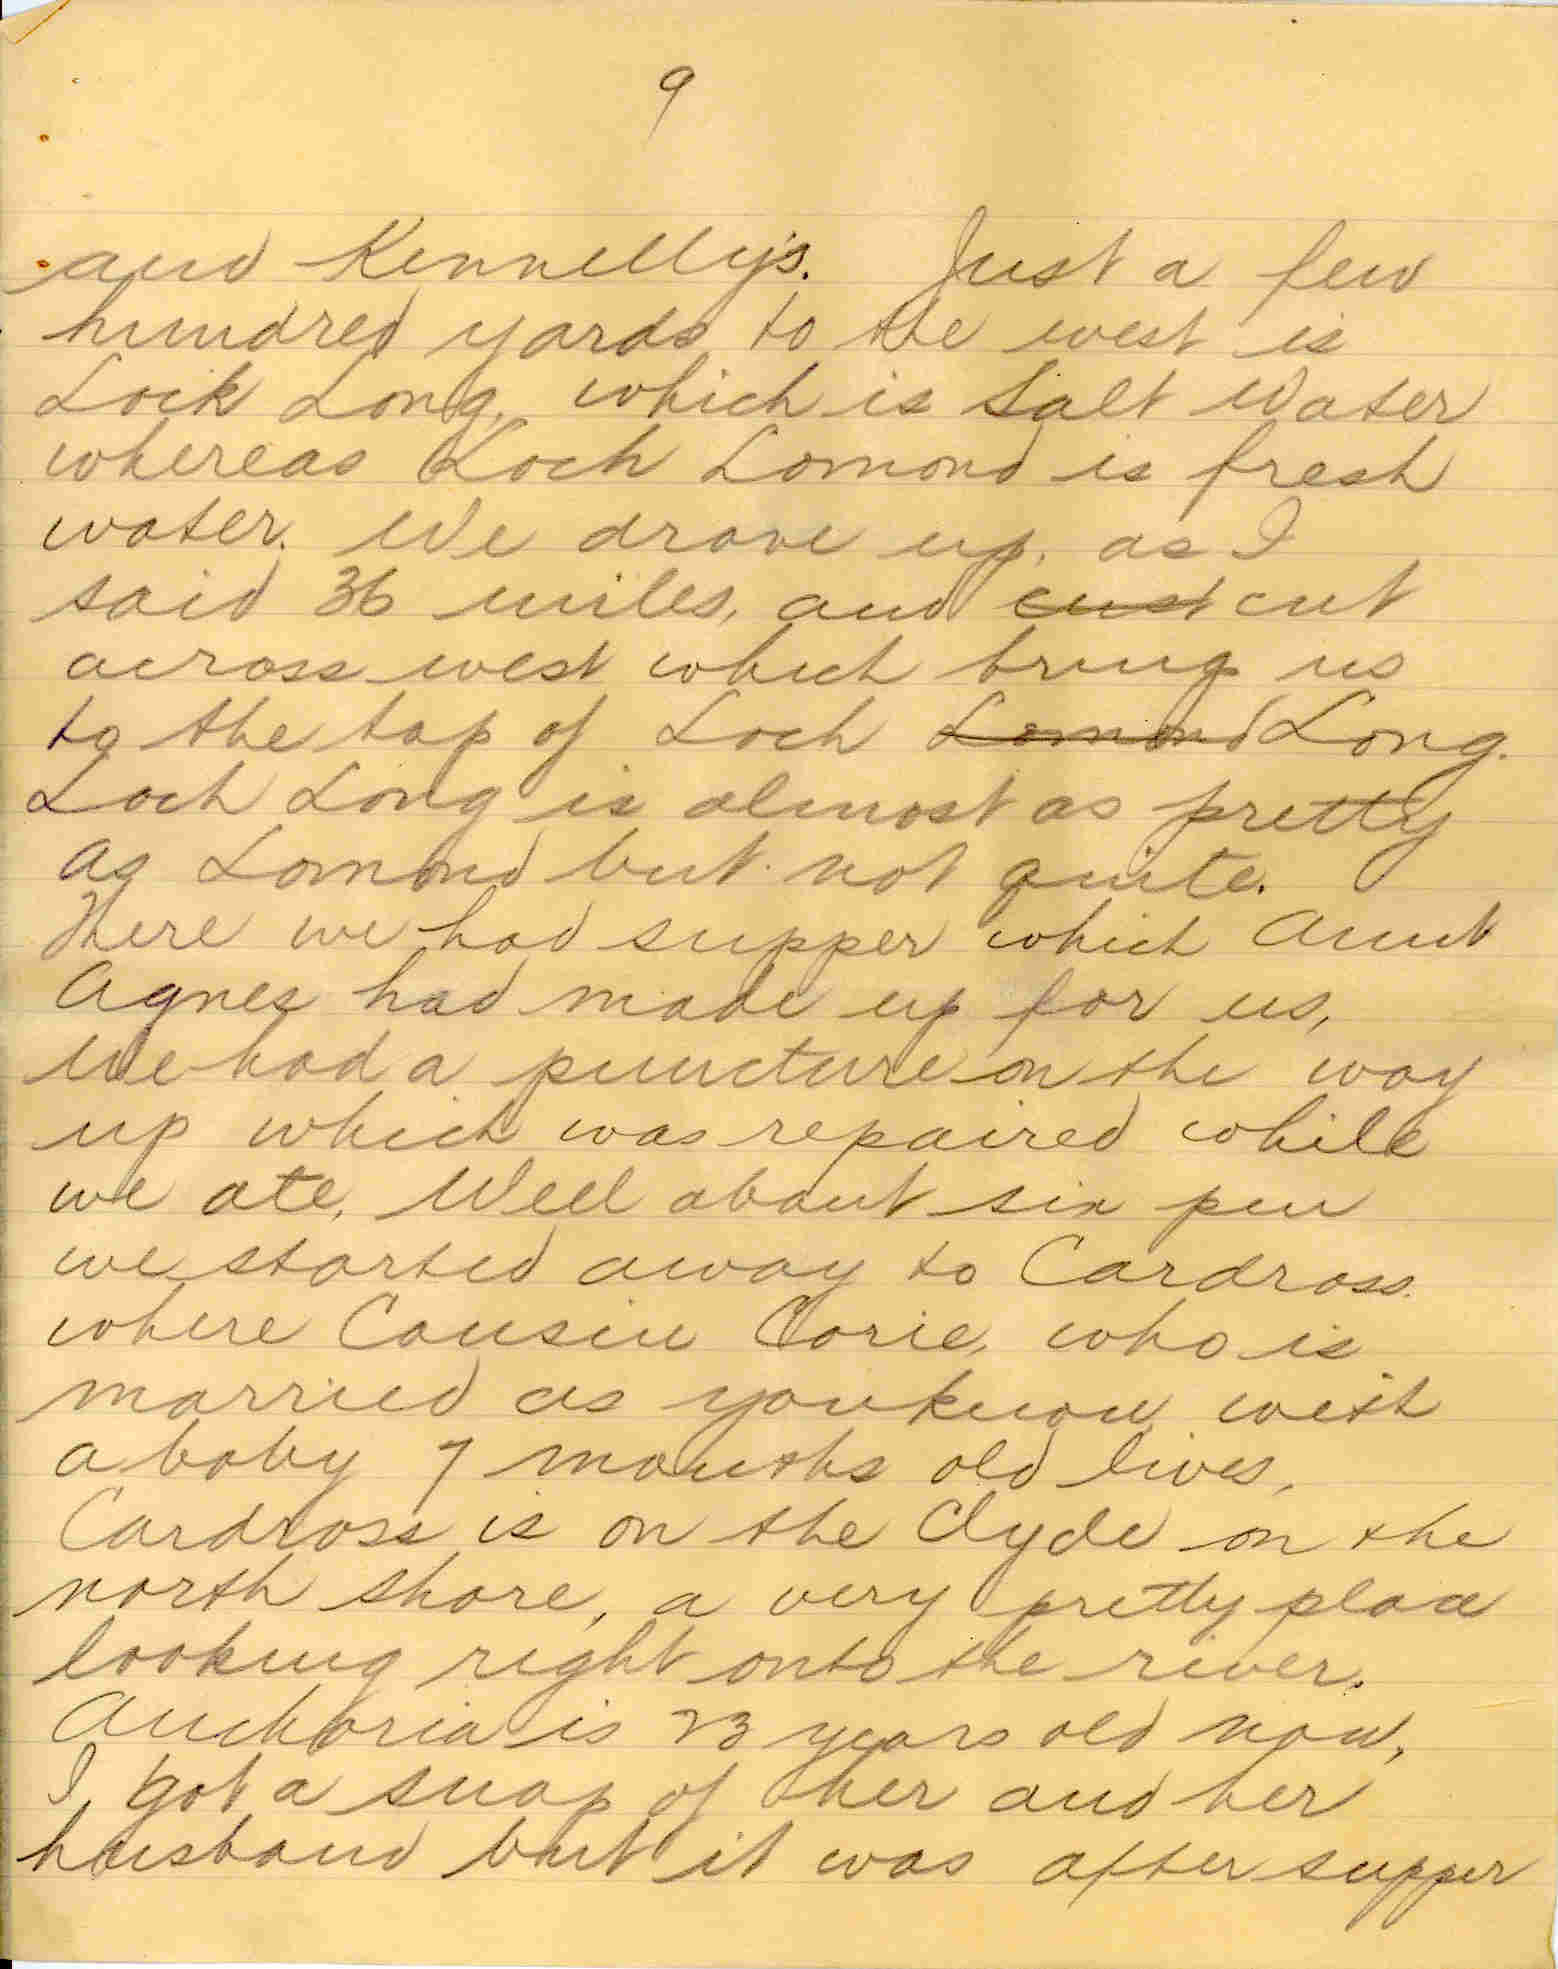 9
and Kennelly's. Just a few
hundred yards to the west is
Lock Long, which is Salt Water
whereas Loch Lomond is fresh
water. We drove up, as I
said 36 miles, and cust cut
across west which bring us
to the top of Loch Lomond Long.
Loch Long is almost as pretty
as Lomond but not quite.
Here we had supper which Aunt
Agnes had made up for us,
We had a puncture on the way
up which was repaired while
we ate. Well about six pm
we started away to Cardross
where Cousin Corie, who is
married as you know with
a baby 7 months old lives,
Cardross is on the Clyde on the
north shore, a very pretty place
looking right onto the river.
Anchoria is 23 years old now,
I got a snap of her and her
husband but it was after supper